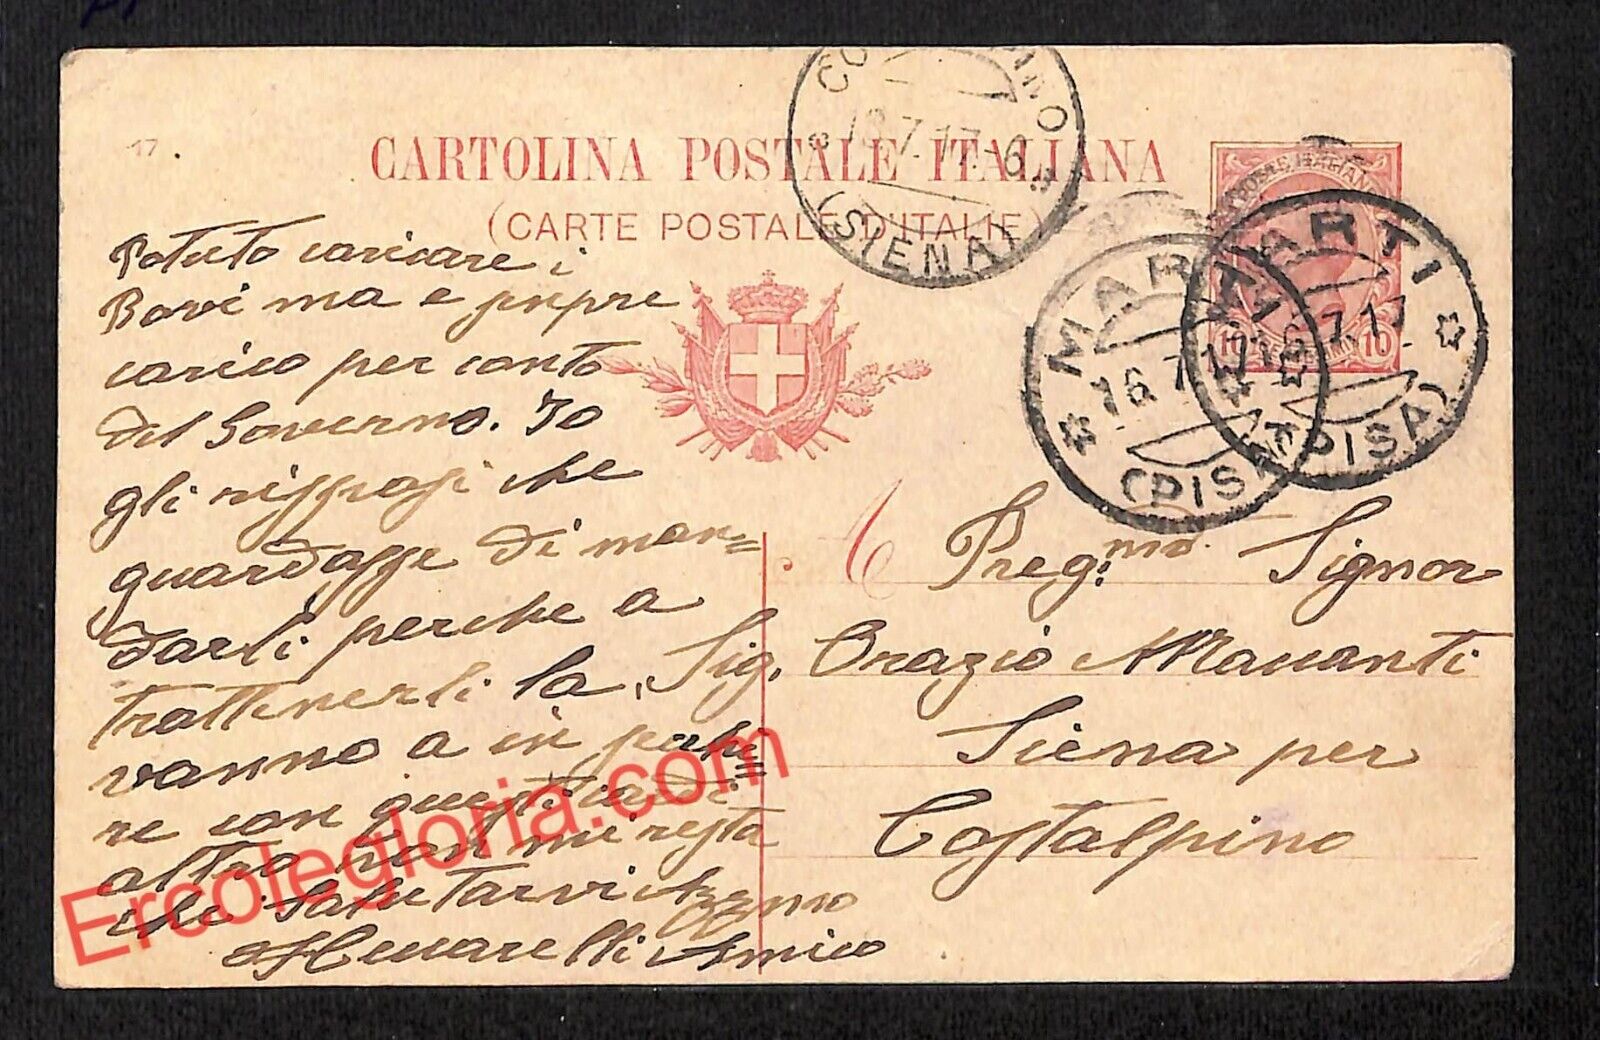 17.
CARTOLINA POSTALE ITALIANA
(CARTE POSTALE D'ITALIE)
18.7.17-6
(SIENA)
MARTI
16.7.17
(PISA)
MARTI
16.7.17
(PISA)
10
10
Potuto caricare i
Bovi ma e
carico per conto
del Governo. Io
gli che
guardasse di man=
darli perche a
trattenerli la
vanno a in
re con
altro non mi resta
che Salutarvi
Amico
A
Preg.mo Signor
Sig. Orazio
Siena per
Costalpino
Ercolegloria.com